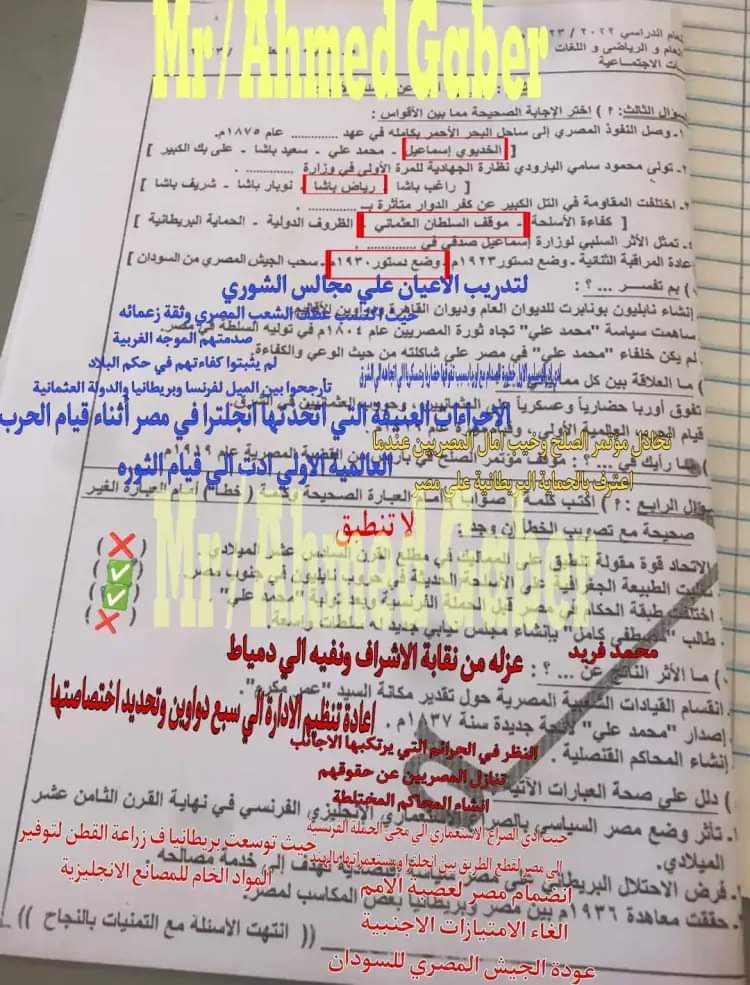 Mr/Ahmed Gaber
لعام الدراسي ٢٠٢٢ / ٢٣
لعام و الرياضى و اللغات
ات الاجتماعية
سؤال الثالث: ٢ ) إختر الإجابة الصحيحة مما بين الأقواس :
١- وصل النفوذ المصري إلى ساحل البحر الأحمر بكامله في عهد ............ عام ١٨٧٥م.
[ الخديوي إسماعيل - محمد علي - سعيد باشا - على بك الكبير ]
تولى محمود سامي البارودي نظارة الجهادية للمرة الأولى في وزارة ............
[ راغب باشا - رياض باشا - نوبار باشا - شريف باشا ]
اختلفت المقاومة في التل الكبير عن كفر الدوار متأثرة بـ ............
[ كفاءة الأسلحة - موقف السلطان العثماني - الظروف الدولية - الحماية البريطانية ]
٤- تمثل الأثر السلبي لوزارة إسماعيل صدقي في ............
عادة المراقبة الثنائية - وضع دستور ١٩٢٣م - وضع دستور ١٩٣٠م - سحب الجيش المصري من السودان ]
) بم تفسر ... ؟ :
لتدريب الاعيان علي مجالس الشوري
إنشاء نابليون بونابرت للديوان العام وديوان القاهرة ودواوين الأقاليم
حيث اكتسب عطف الشعب المصري وثقة زعمائه
ساهمت سياسة "محمد علي" تجاه ثورة المصريين عام ١٨٠٤م في توليه السلطة في مصر.
صدمتهم الموجه الغربية
لم يكن خلفاء "محمد علي" في مصر على شاكلته من حيث الوعي والكفاءة.
لم يثبتوا كفاءتهم في حكم البلاد
) ما العلاقة بين كل مما
تأرجحوا بين الميل لفرنسا وبريطانيا والدولة العثمانية
تفوق أوربا حضارياً وعسكرياً على العثمانيين، وحروب العثمانيين في الشرق.
الاجراءات العنيفة التي اتخذتها انجلترا في مصر أثناء قيام الحرب
قيام الحرب العالمية الأولى، وقيام
العالمية الاولي ادت الي قيام الثوره
تخاذل مؤتمر الصلح وخيب امال المصريين عندما
ما رأيك في ... ؟ : موقف مؤتمر الصلح في باريس من القضية المصرية عام ١٩١٩م
اعترف بالحماية البريطانية علي مصر
سؤال الرابع : ٢ ) اكتب كلمة ( صواب ) أمام العبارة الصحيحة وكلمة ( خطأ ) أمام العبارة الغير
صحيحة مع تصويب الخطأ إن وجد :
لا تنطبق
Mr/Ahmed Gaber
الاتحاد قوة مقولة تنطبق على المماليك في مطلع القرن السادس عشر الميلادي . ( ❌ )
تغلبت الطبيعة الجغرافية على الأسلحة الحديثة في حروب نابليون في جنوب مصر. ( ✅ )
اختلفت طبقة الحكام في مصر قبل الحملة الفرنسية وبعد تولية "محمد علي" ( ✅ )
طالب "مصطفي كامل" بإنشاء مجلس نيابي جديد له سلطات واسعة. ( ❌ )
محمد فريد
) ما الأثر الناتج عن ... ؟ :
عزله من نقابة الاشراف ونفيه الي دمياط
انقسام القيادات الشعبية المصرية حول تقدير مكانة السيد "عمر مكرم".
اعادة تنظيم الادارة الي سبع دواوين وتحديد اختصاصتها
إصدار "محمد علي" لائحة جديدة سنة ١٨٣٧م .
إنشاء المحاكم القنصلية .
النظر في الجرائم التي يرتكبها الاجانب
تنازل المصريين عن حقوقهم
انشاء المحاكم المختلطة
) دلل على صحة العبارات الآتية
١- تأثر وضع مصر السياسي، بالصراع الاستعماري الإنجليزي الفرنسي في نهاية القرن الثامن عشر
الميلادي.
حيث ادي الصراع الاستعماري الي مجئ الحملة الفرنسية
الي مصر لقطع الطريق بين انجلترا ومستعمراتها بالهند
حيث توسعت بريطانيا ف زراعة القطن لتوفير
المواد الخام للمصانع الانجليزية
فرض الاحتلال البريطاني على مصر سياسة اقتصادية تهدف إلى خدمة مصالحه .
انضمام مصر لعصبة الامم
حققت معاهدة ١٩٣٦م بين مصر وبريطانيا بعض المكاسب لمصر.
الغاء الامتيازات الاجنبية
(( انتهت الأسئلة مع التمنيات بالنجاح ))
عودة الجيش المصري للسودان